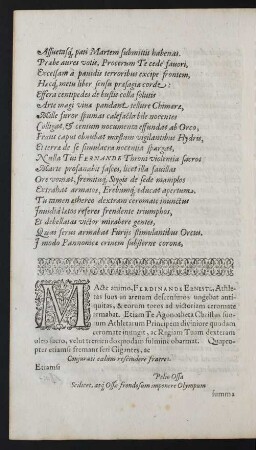 Assuetasq, pati Martem submittis habenas.
Præbe aures votis, Procerum Te cede favori,
Excelsam à pavidis terroribus excipe frontem,
Hæcq, metu liber sensu præsagia corde:
Effera centipedes de bustis colla solutis
Arte magi vina pandant tellure Chimæra,
Mille furor spumas calefacta bile nocentes
Colligat, & centum monumenta effundat ab Orco,
Fronte caput obnubat mæstum vigilantibus Hydris,
Et terra de se simulacra nocentia spargat,
Nulla Tui FERNANDE Throni violentia sacros
Marte profanabit fasces, licet illa favillas
Ore vomat, fremitúq, Styos de sede maniplos
Extrahat armatos, Erebumq, educat apertum.
Tu tamen æthereo dextram ceromate invinctus
Invidiâ latos referes frendente triumphos,
Et debellatas victor mirabere gentes,
Quas ferus armabat Furijs stimulantibus Orcus.
I modo Pannonicæ crinem substerne coronæ,
MActe animo, FERDINANDE ERNESTE, Athletas
suos in arenam descensuros ungebat antiquitas,
& eorum toros ad victoriam ceromate
armabat. Etiam Te Agonotheta Christus suorum
Athletarum Principem diviniore quodam
ceromate inungit, ac Regiam Tuam dexteram
oleo sacro, velut tremendo quodam fulmine obarmat. Quapropter
etiamsi fremant feri Gigantes, ac
Conjurati cœlum rescindere fratres.
Etiamsi
Pelio Ossa
Scilicet, atq; Ossæ frondosum imponere Olympum
summa